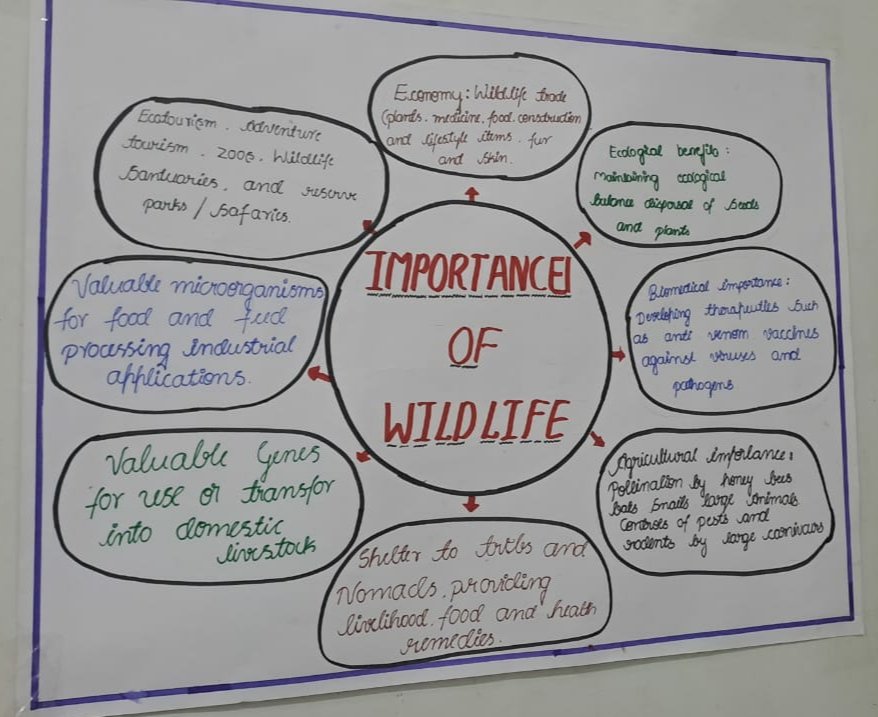 IMPORTANCE
OF
WILDLIFE
Economy: Wildlife trade
(plants. medicine. food. construction
and lifestyle items. fur
and skin.
Ecological benefits:
Maintaining ecological
balance disposal of Seeds
and plants
Biomedical importance:
Developing therapeuties Such
as anti venom vaccines
against viruses and
pathogens
Agricultural importance:
Pollination by honey bees
bats Snails large Animals.
Controls of pests and
rodents by large carnivars
Shelter to tribs and
Nomads. providing
livelihood. food and health
remedies.
Valuable Genes
for use or transfor
into domestic
livestock
Valuable microorganisms
for food and feed
processing industrial
applications.
Ecotourism. Adventure
tourism. zoos. Wildlife
Santuaries. and reserve
parks / Safaries.